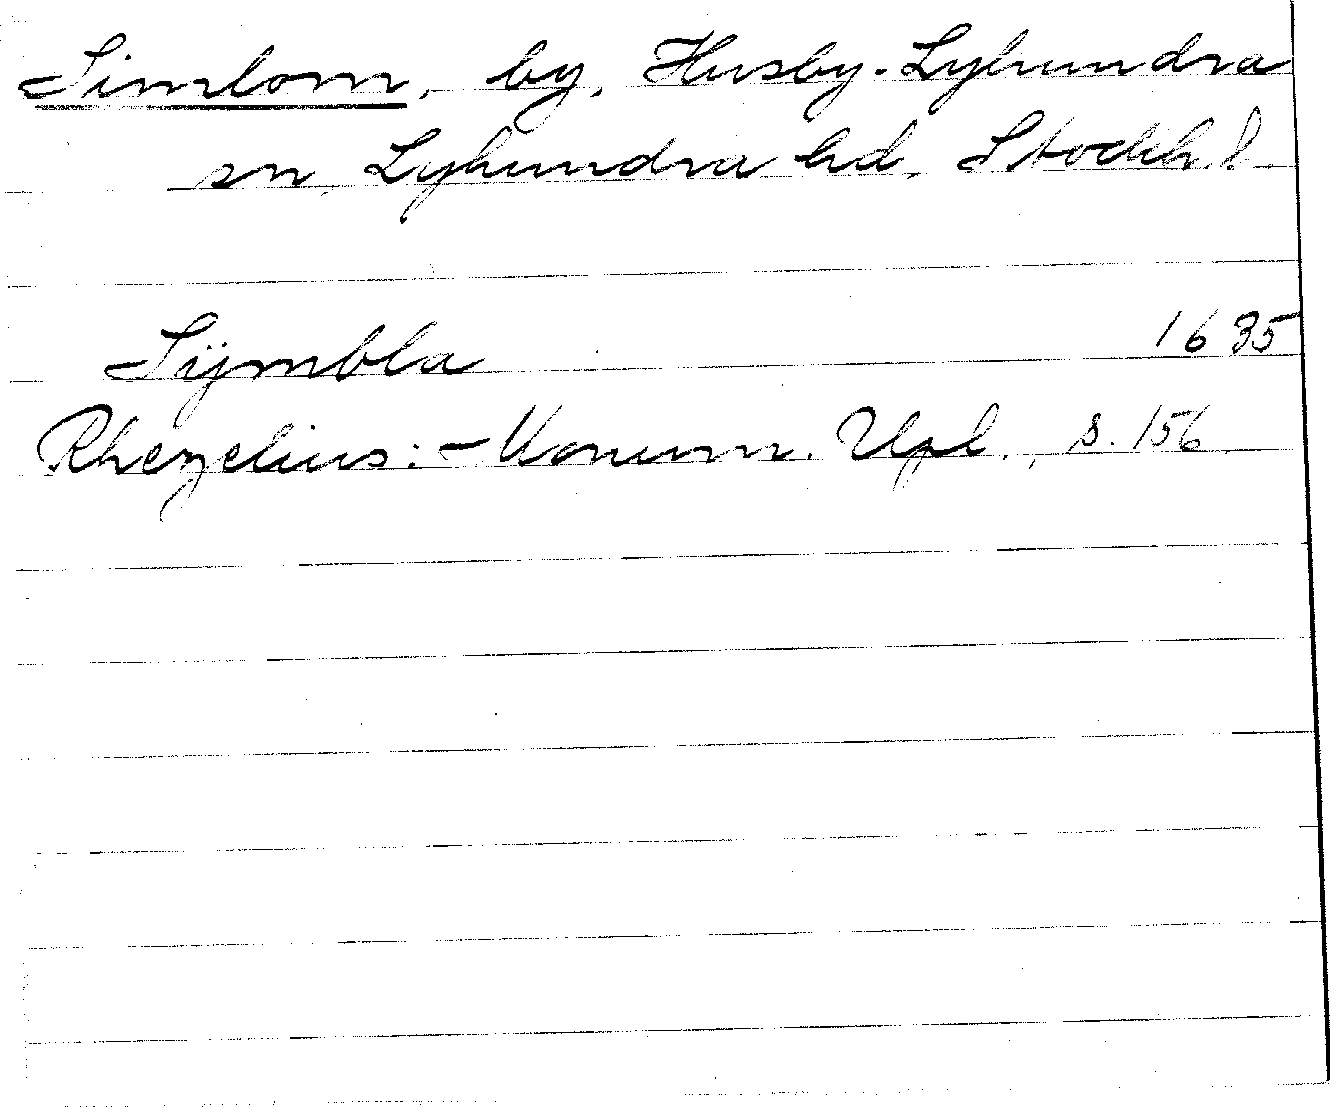 Simlom, by, Husby-Lyhundra
sn, Lyhundra hd, Stockh. l
Sÿmbla 1635
Rhezelius: Monum. Upl., s. 156